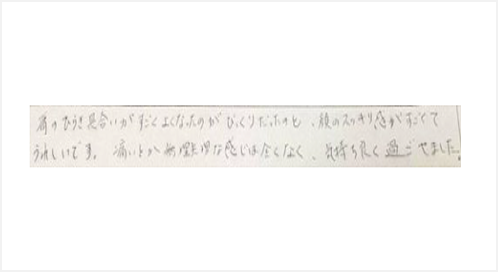 肩のひらき具合いがすごくよくなったのがびっくりだったのと、顔のスッキリ感がすごくて
うれしいです。痛いとか無理矢理な感じは全くなく、気持ち良く過ごせました。